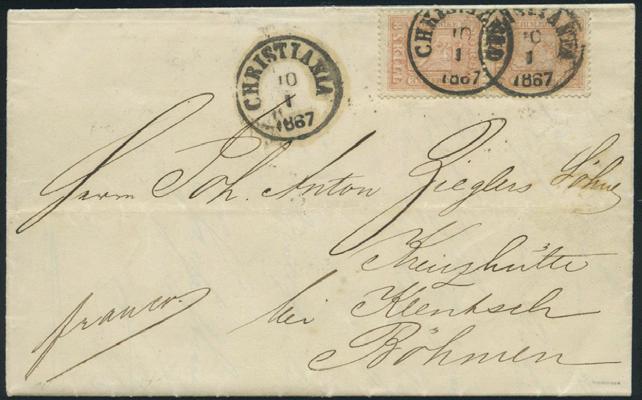 CHRISTIANIA
10
1
1867
CHRISTIANIA
10
1
1867
CHRISTIANIA
10
1
1867
Herrn Joh. Anton Zieglers Söhne
Kreuzhütte
bei Klentsch
Böhmen
franco.